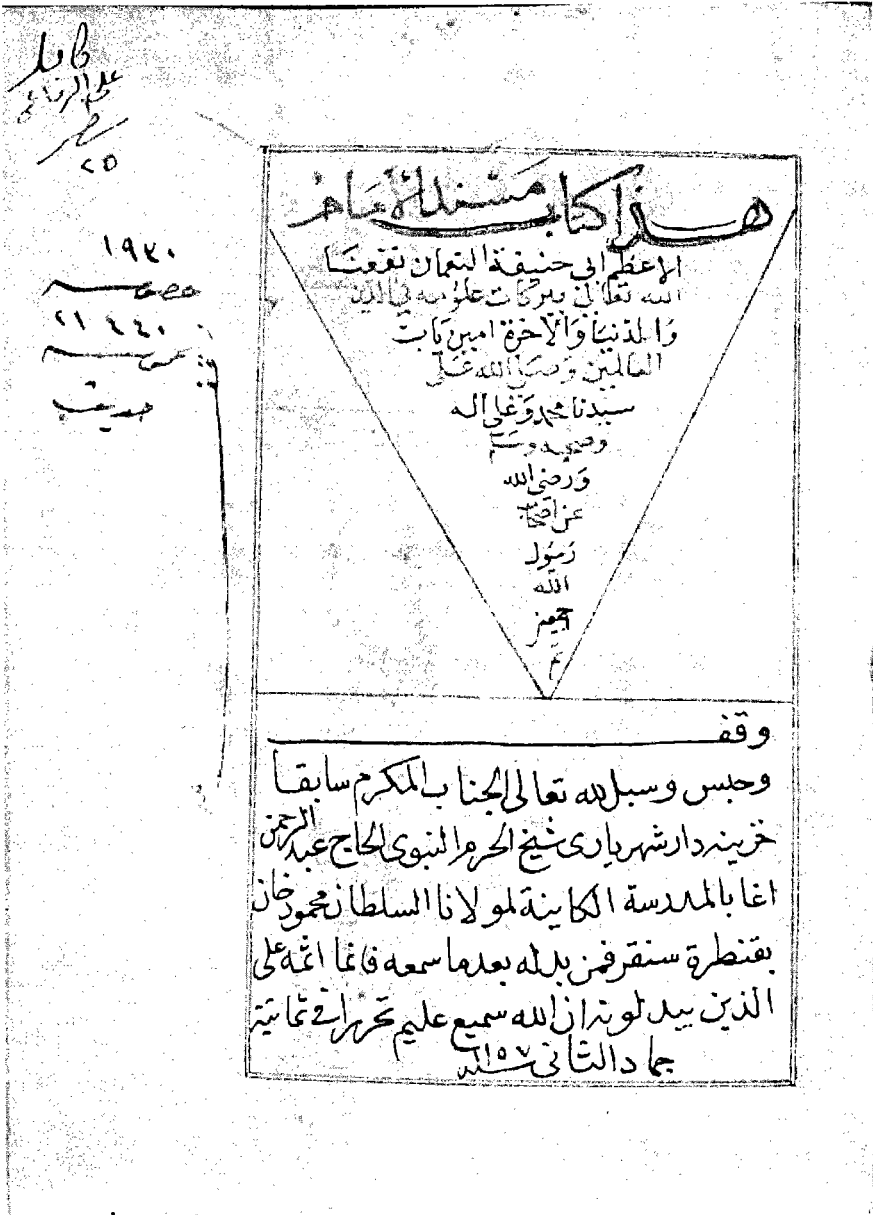 كامل
على الرفاعي
سطر
٢٥
١٩٣٠
خصوصية
٤٤٠ ٢١
عمومية
حديث
هذا كتاب مسند الامام
الاعظم ابى حنيفة النعمان نفعنا
الله تعالى ببركات علومه في الدين
والدنيا والاخرة امين يا رب
العالمين وصلى الله على
سيدنا محمد وعلى اله
وصحبه وسلم
ورضى الله
عن اصحاب
رسول
الله
اجمعين
م
وقف
وحبس وسبل لله تعالى الجناب المكرم سابقا
خزينه دار شهريارى شيخ الحرم النبوى الحاج عبد الرحمن
اغا بالمدرسة الكاينة لمولانا السلطان محمود خان
بقنطرة سنقر فمن بدله بعد ما سمعه فانما اثمه على
الذين يبدلونه ان الله سميع عليم تحريرا في ثمانية
جماد الثانى سنة ١١٥٧